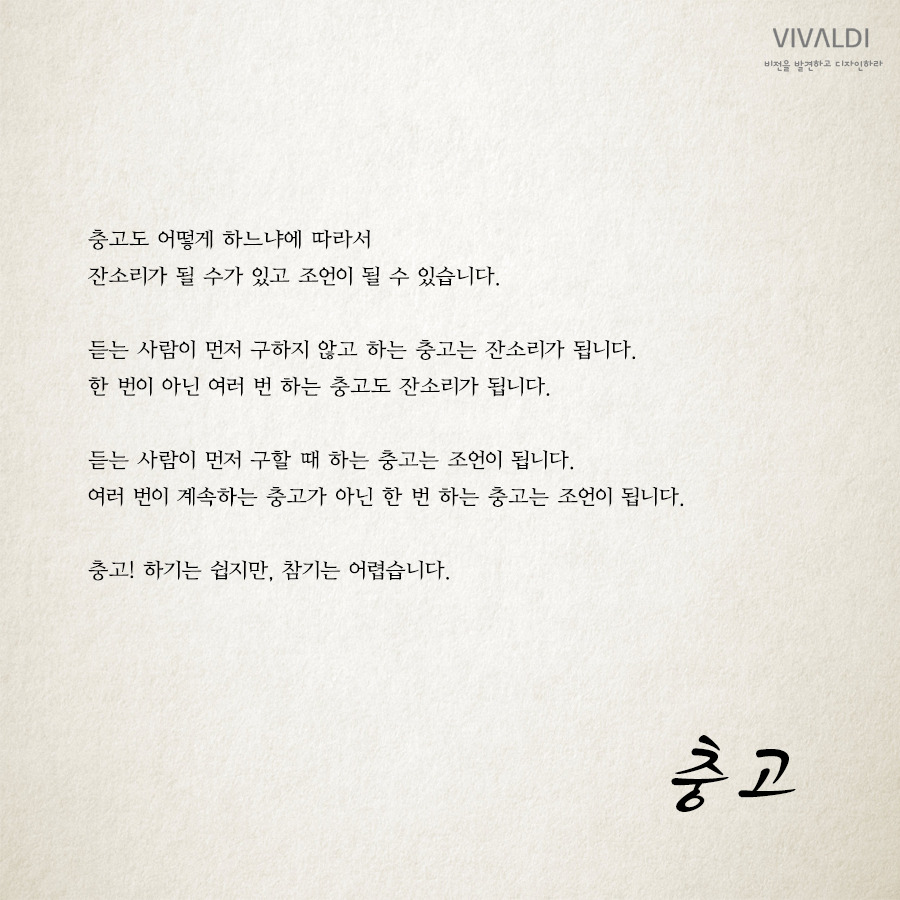 VIVALDI
비전을 발견하고 디자인하라
충고도 어떻게 하느냐에 따라서
잔소리가 될 수가 있고 조언이 될 수 있습니다.
듣는 사람이 먼저 구하지 않고 하는 충고는 잔소리가 됩니다.
한 번이 아닌 여러 번 하는 충고도 잔소리가 됩니다.
듣는 사람이 먼저 구할 때 하는 충고는 조언이 됩니다.
여러 번이 계속하는 충고가 아닌 한 번 하는 충고는 조언이 됩니다.
충고! 하기는 쉽지만, 참기는 어렵습니다.
충고